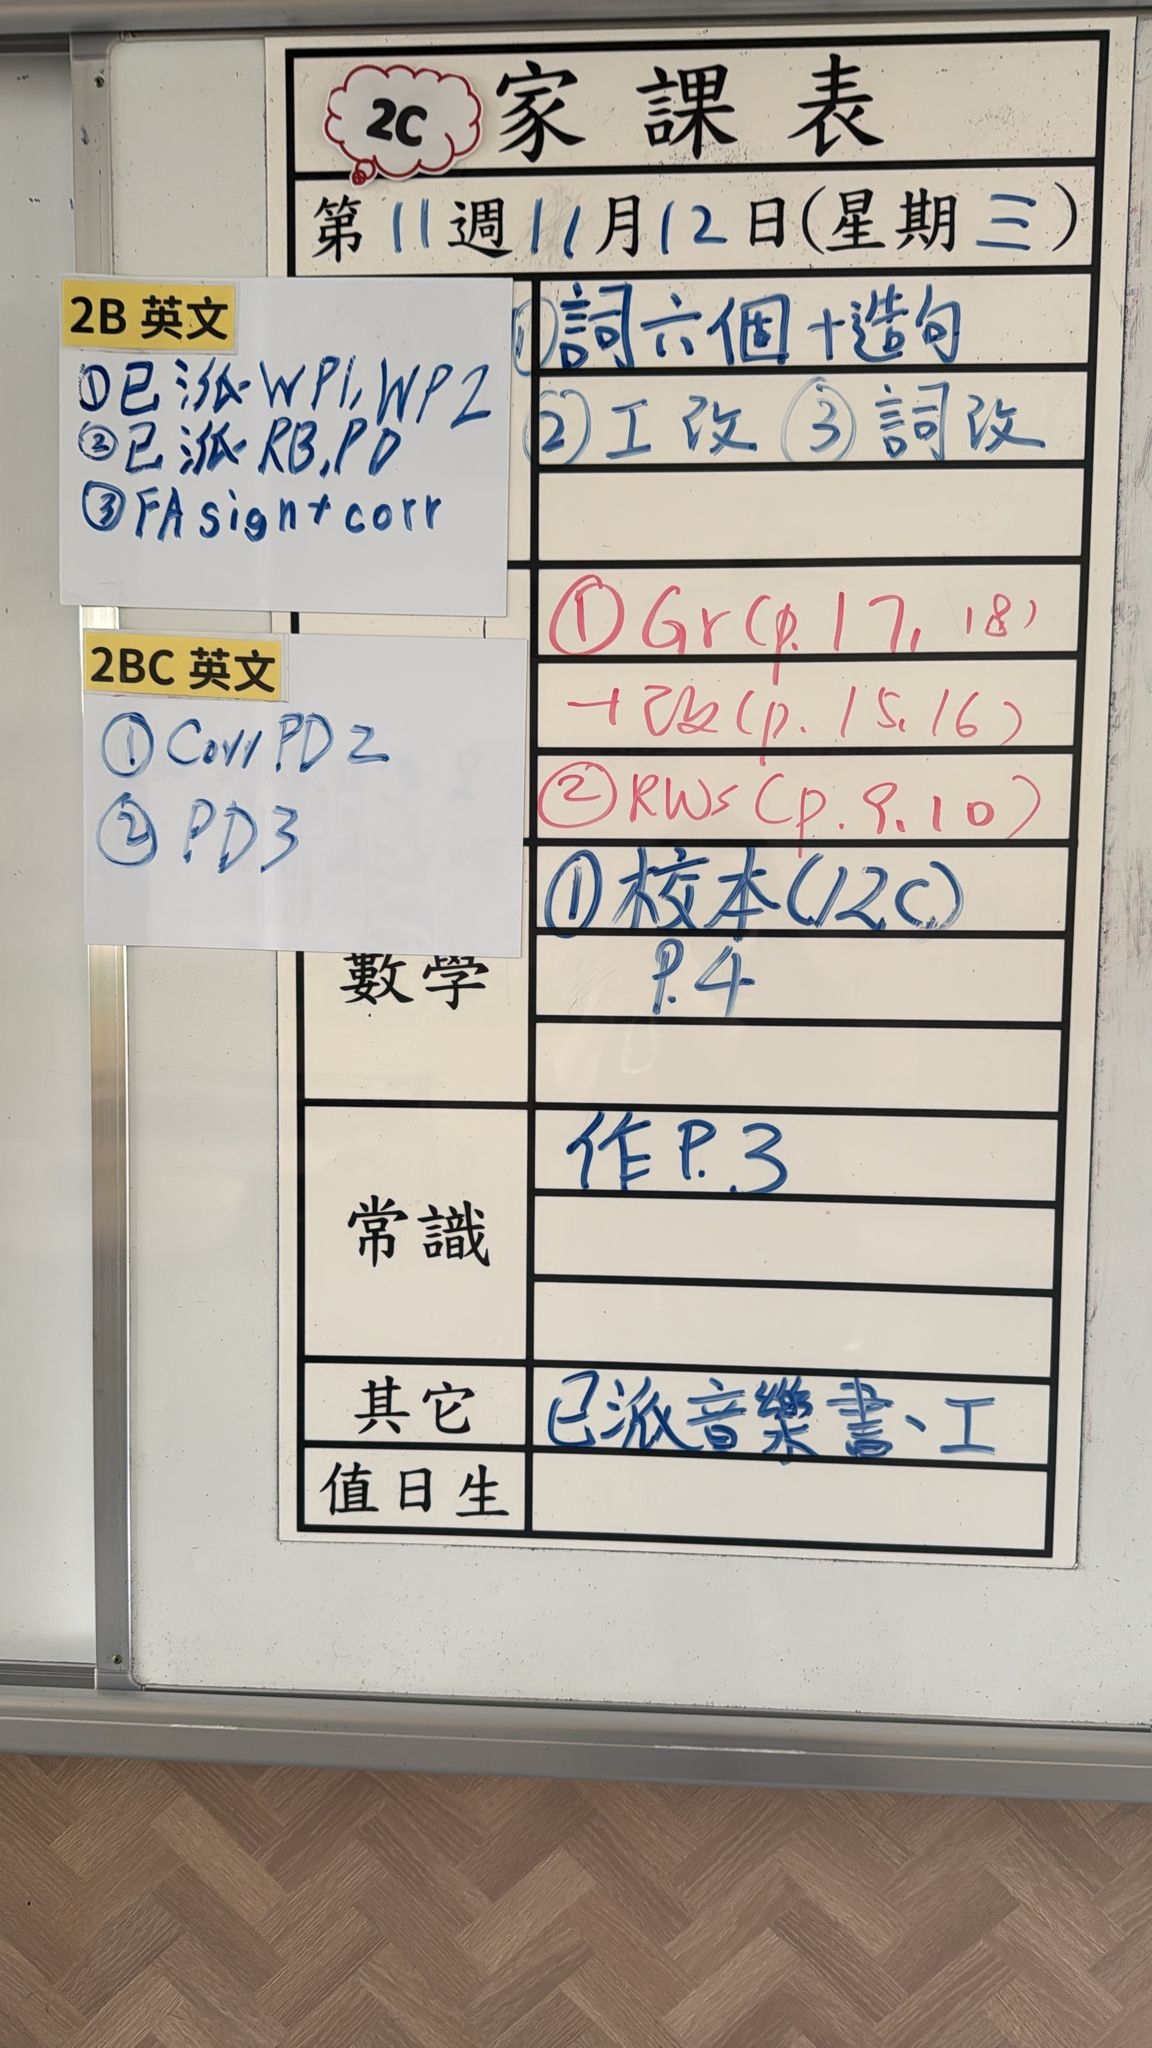 2C 家課表
第11週11月12日(星期三)
2B 英文
①已派WP1, WP2
②已派RB, PD
③FA sign + corr
2BC 英文
①Corr PD2
②PD3
①詞六個+造句
②工改 ③詞改
①Gr(p.17, 18)
+改(p.15,16)
②RWs(p.9,10)
數學
①校本(12C)
P.4
常識
作P.3
其它
已派音樂書、工
值日生